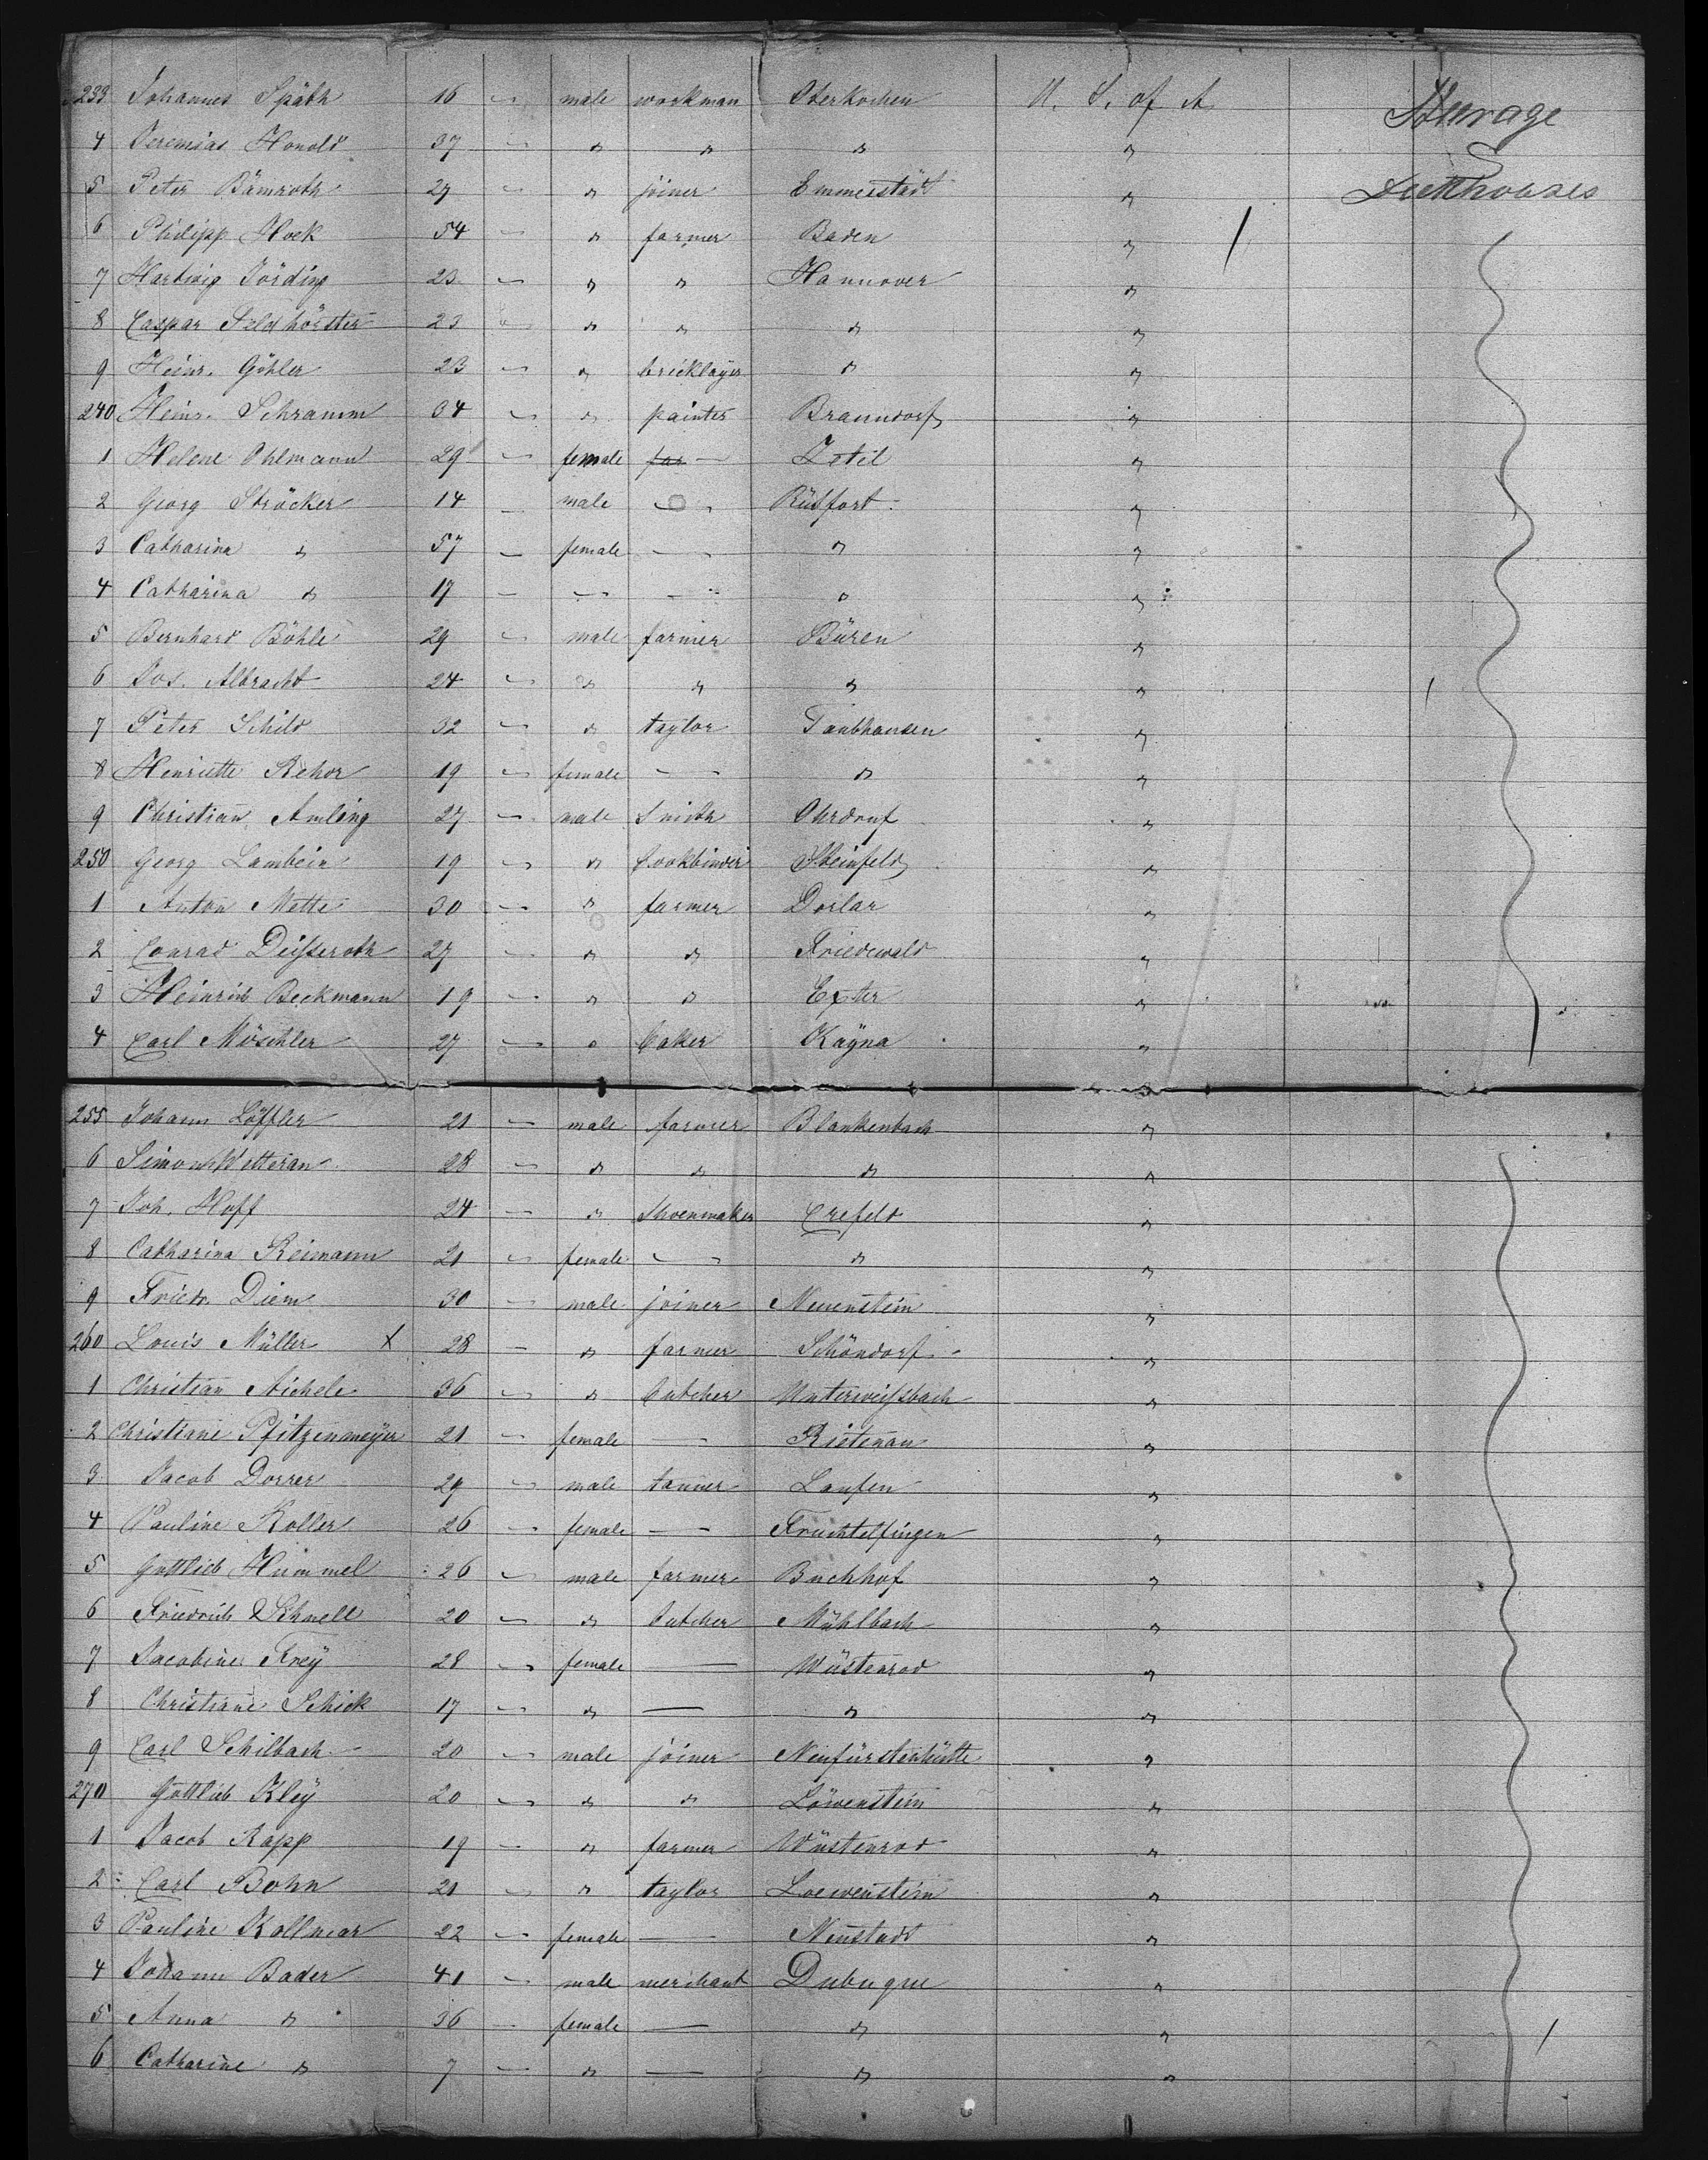 233 Johannes Späth 16 — male workman Oberkochen U. S. of A. Steerage
4 Jeremias Honold 37 — " " " "
5 Peter Bämroth 27 — " joiner Emmerstädt "
6 Philipp Hock 54 — " farmer Baden "
7 Hartwig Jörding 23 — " " Hannover "
8 Caspar Feldhörster 23 — " " " "
9 Heinr. Göhler 23 — " bricklayer " "
240 Heinr. Schramm 34 — " painter Braundorf "
1 Helene Ohlmann 29 — female — Zetil "
2 Georg Ströcker 14 — male — Rütfort "
3 Catharina " 57 — female — " "
4 Catharina " 17 — — — " "
5 Bernhard Böhle 29 — male farmer Büren "
6 Jos. Albracht 24 — " " " "
7 Peter Schild 32 — " taylor Taubhausen "
8 Henriette Rehor 19 — female — " "
9 Christian Amling 27 — male Smith Ohrdruf "
250 Georg Lambein 19 — " bookbinder Steinfeld "
1 Anton Mette 30 — " farmer Dorlar "
2 Conrad Deisseroth 27 — " " Friedewald "
3 Heinrich Beckmann 19 — " " Exter "
4 Carl Möschler 27 — " baker Kayna "
255 Johann Löffler 21 — male farmer Blankenbach "
6 Simon Wetteran 28 — " " " "
7 Joh. Hoff 24 — " Shoemaker Crefeld "
8 Catharina Reimann 21 — female — " "
9 Friedr. Diem 30 — male joiner Neuenstein "
260 Louis Müller X 28 — " farmer Schöndorf "
1 Christian Aichele 36 — " butcher Unterweissbach "
2 Christiane Pfitzenmeyer 21 — female — Rietenau "
3 Jacob Dorrer 29 — male tanner Laufen "
4 Pauline Koller 26 — female — Truchtelfingen "
5 Gottlieb Himmel 26 — male farmer Buchhof "
6 Friedrich Schnell 20 — " butcher Mühlbach "
7 Jacobine Frey 28 — female — Wüstenrod "
8 Christiane Schick 17 — " — " "
9 Carl Schilbach 20 — male joiner Neufürstenhütte "
270 Gottlieb Kley 20 — " " Löwenstein "
1 Jacob Rapp 19 — " farmer Wüstenrod "
2 Carl Bohn 21 — " taylor Loewenstein "
3 Pauline Kollmar 22 — female — Neustadt "
4 Johann Bader 41 — male merchant Dubuque "
5 Anna " 36 — female — " "
6 Catharine " 7 — " — " "